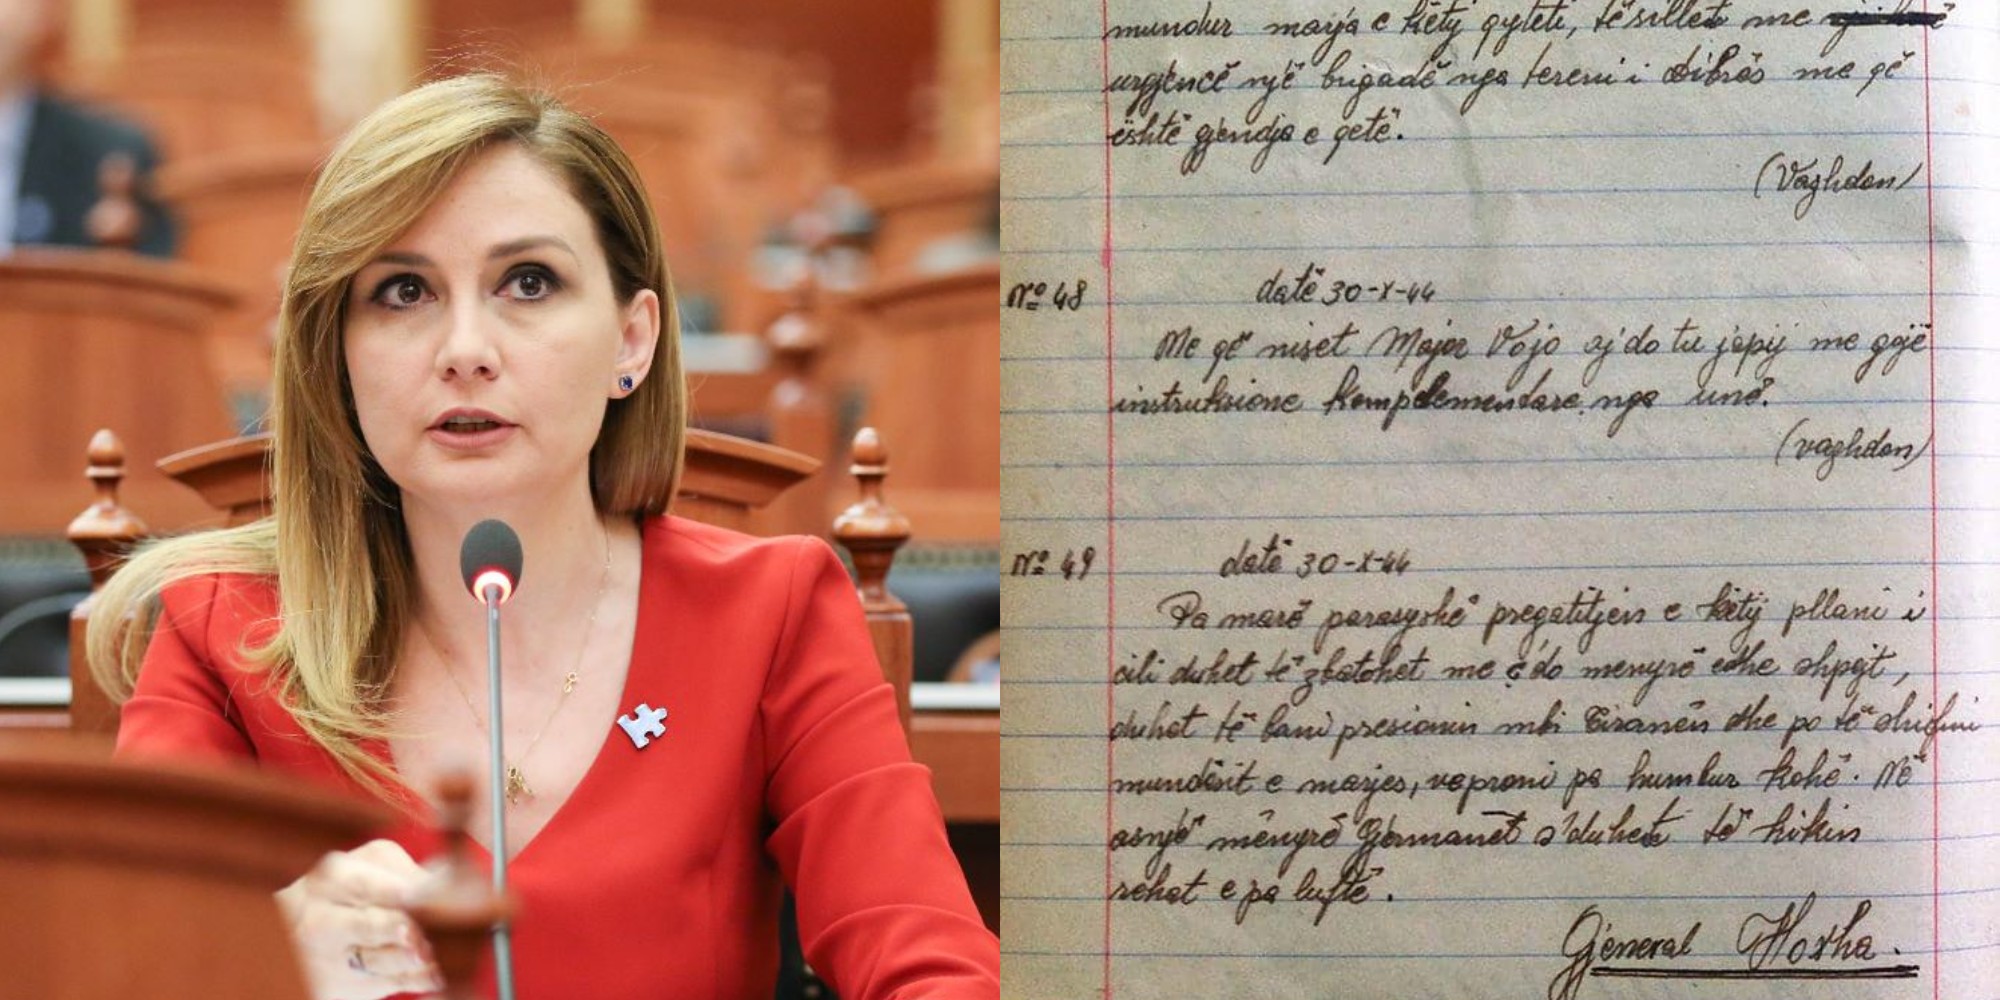 mundur marja e këtij qyteti, të sillet me
urgjencë një brigadë nga tereni i dibrës me që
është gjendja e qetë.
(Vazhdon)
Nº 48 datë 30-X-44
Me që niset Major Vojo aj do tu japij me gojë
instruksione komplementare nga unë.
(vazhdon)
Nº 49 datë 30-X-44
Pa marë parasyshë pregatitjen e këtij pllani i
cili duhet të zbatohet me çdo menyrë edhe shpejt,
duhet të bani presionin mbi Tiranën dhe po të shifni
mundësit e marjes, veproni pa humbur kohë. Në
asnjë mënyrë Gjermanët s'duhet të hikin
rehat e pa luftë.
Gjeneral Hoxha.